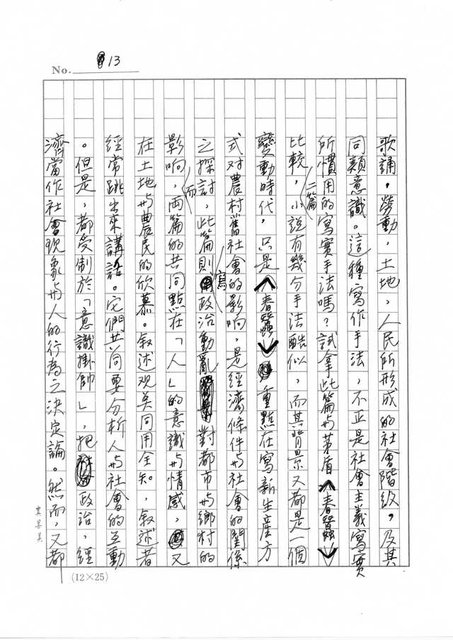 No. 13
歌誦。勞動,土地,人民所形成的社會階級,及其
同類意識。這種寫作手法,不正是社會主義寫實
所慣用的寫實手法嗎?試拿此篇與茅盾︿春蠶﹀
比較,二篇小說有幾分手法酷似,而其背景又都是一個
變動時代,只是︿春蠶﹀重點在寫新生產方
式对農村舊社會的影响,是經濟條件與社會的關係
之探討,此篇則寫政治動亂對都市與鄉村的
影响,而兩篇的共同點在「人」的意識與情感,又
在土地與農民的欣慕。叙述观臭同用全知,叙述者
經常跳出來講話。它們共同要分析人與社會的互動
。但是,都受制於「意識掛帥」,把政治,經
濟當作社會現象與人的行為之決定論。然而,又都
(12×25)